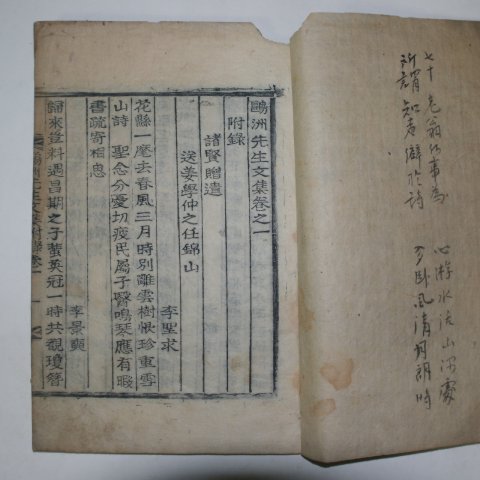 七十老翁何事爲
所謂知者癖於詩
心游水流山深處
高臥風淸月朗時
鷗洲先生文集卷之一
附錄
諸賢贈遺
送姜學仲之任錦山
李聖求
花縣一麾去春風三月時別離雲樹恨珍重雪
山詩聖念分憂切疲民屬子醫鳴琴應有暇
書疏寄相思
李景奭
歸來豈料遇昌期之子蜚英冠一時共覩瓊簪
鷗洲先生文集附錄卷一